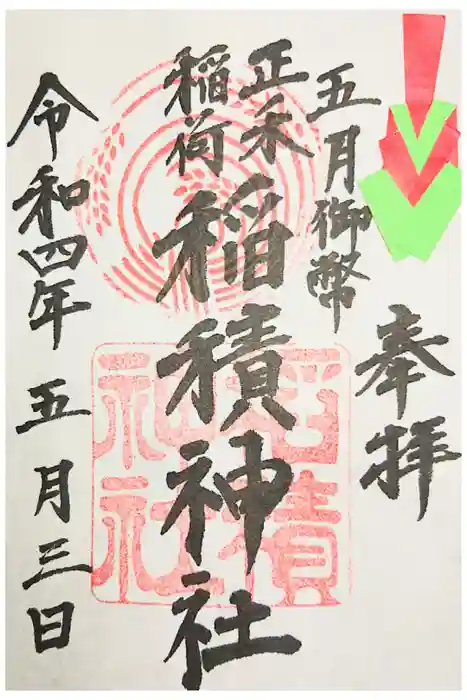 奉拝
五月御幣
正木稲荷
稲積神社
稲積神社
令和四年五月三日